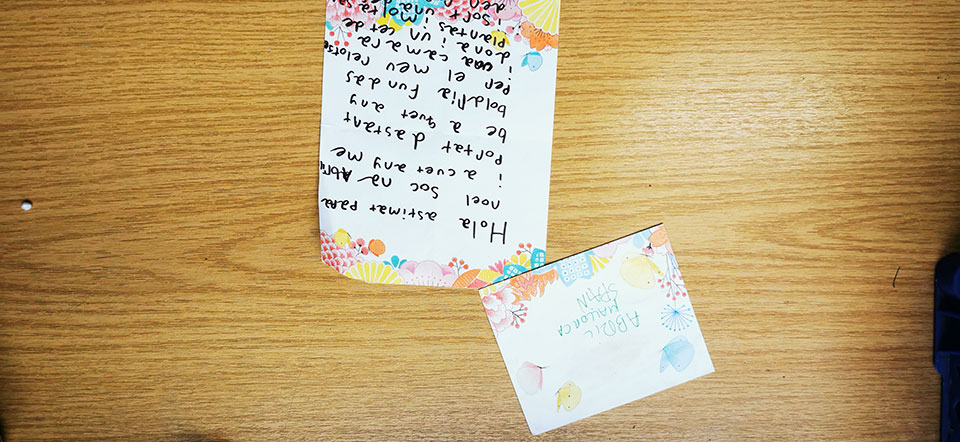 Hola astimat para
noel soc na Abri
i a cuet any me
portat dastant
be a quet any
boldria fundas
per el meu relotse
i una camara
dona i un cet de
plantas i
i sort
ABRIL
MALLORCA
SPAIN